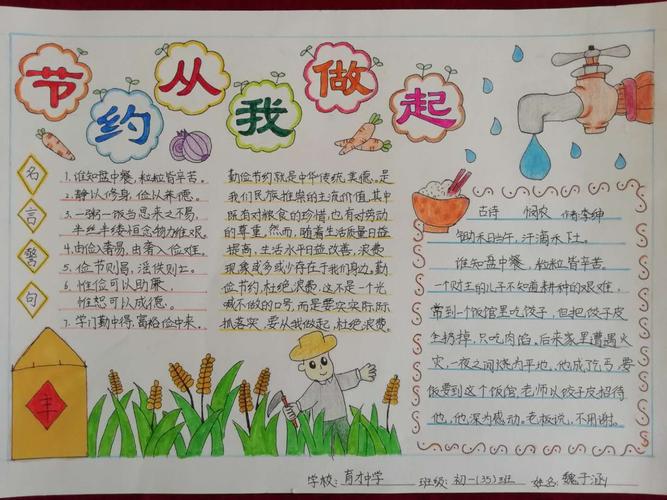 节约从我做起
名言警句
1. 谁知盘中餐,粒粒皆辛苦。
2. 静以修身,俭以养德。
3. 一粥一饭当思来之不易,
半丝半缕恒念物力维艰。
4. 由俭入奢易,由奢入俭难。
5. 俭节则昌,淫佚则亡。
6. 惟俭可以助廉,
惟恕可以成德。
7. 学门勤中得,富裕俭中来。
勤俭节约就是中华传统美德。是
我们民族推崇的主流价值,其中
既有对粮食的珍惜,也有对劳动
的尊重,然而,随着生活质量日益
提高,生活水平日益改善,浪费
现象或多或少存在于我们身边,勤
俭节约,杜绝浪费,这不是一个光
喊不做的口号,而是要实实际际
抓落实,要从我做起,杜绝浪费。
古诗 悯农 李绅
锄禾日当午,汗滴禾下土。
谁知盘中餐,粒粒皆辛苦。
一个财主的儿子不知道耕种的艰难。
常到一个饭馆里吃饺子,但把饺子皮
全扔掉,只吃肉馅。后来家里遭遇火
灾,一夜之间烧为平地,他成了乞丐,要
饭要到这个饭馆,老师以饺子皮招待
他,他深为感动。老板说,不用谢。
丰
学校:育才中学 班级:初一(35)班 姓名:魏子涵